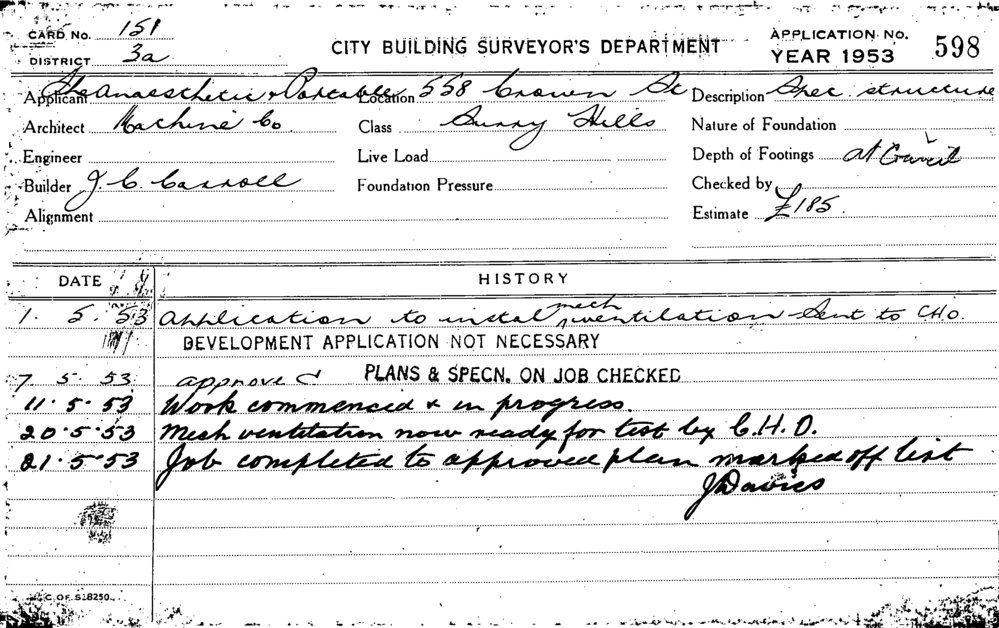 CARD No. 151
DISTRICT 3a
CITY BUILDING SURVEYOR'S DEPARTMENT
APPLICATION No. 598
YEAR 1953
Applicant The Anaesthetic & Portable Location 558 Crown St Description Spec. structure
Architect Machine Co Class Surry Hills Nature of Foundation
Engineer Live Load Depth of Footings at
Builder J. C. Carroll Foundation Pressure Checked by
Alignment Estimate £185
DATE HISTORY
1. 5. 53 Application to instal mech ventilation Sent to C.H.O.
DEVELOPMENT APPLICATION NOT NECESSARY
7. 5. 53 approved PLANS & SPECN. ON JOB CHECKED
11.5.53 Work commenced & in progress.
20.5.53 Mech ventilation now ready for test by C.H.O.
21.5.53 Job completed to approved plan marked off list
J Davies
C. OF S. 8250